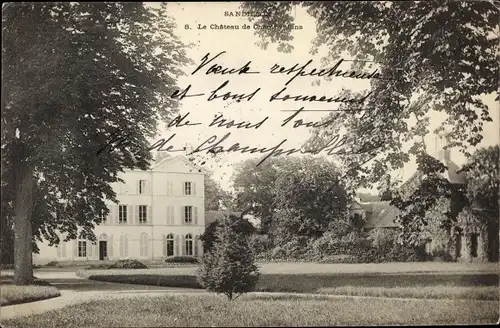 SAND
8. Le Château de Ch
Vœux respectueux
et bons souvenirs
de nous tous
de Champ